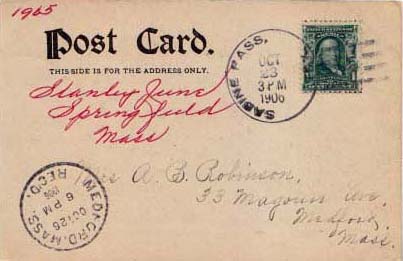 1965
Post Card.
THIS SIDE IS FOR THE ADDRESS ONLY.
Stanley June
Springfield
Mass
SABINE PASS,
OCT
23
3 PM
1906
A. B. Robinson,
33 Magoun Ave,
Medford,
Mass.
MEDFORD, MASS.
OCT 26
6 PM
1906
REC'D.